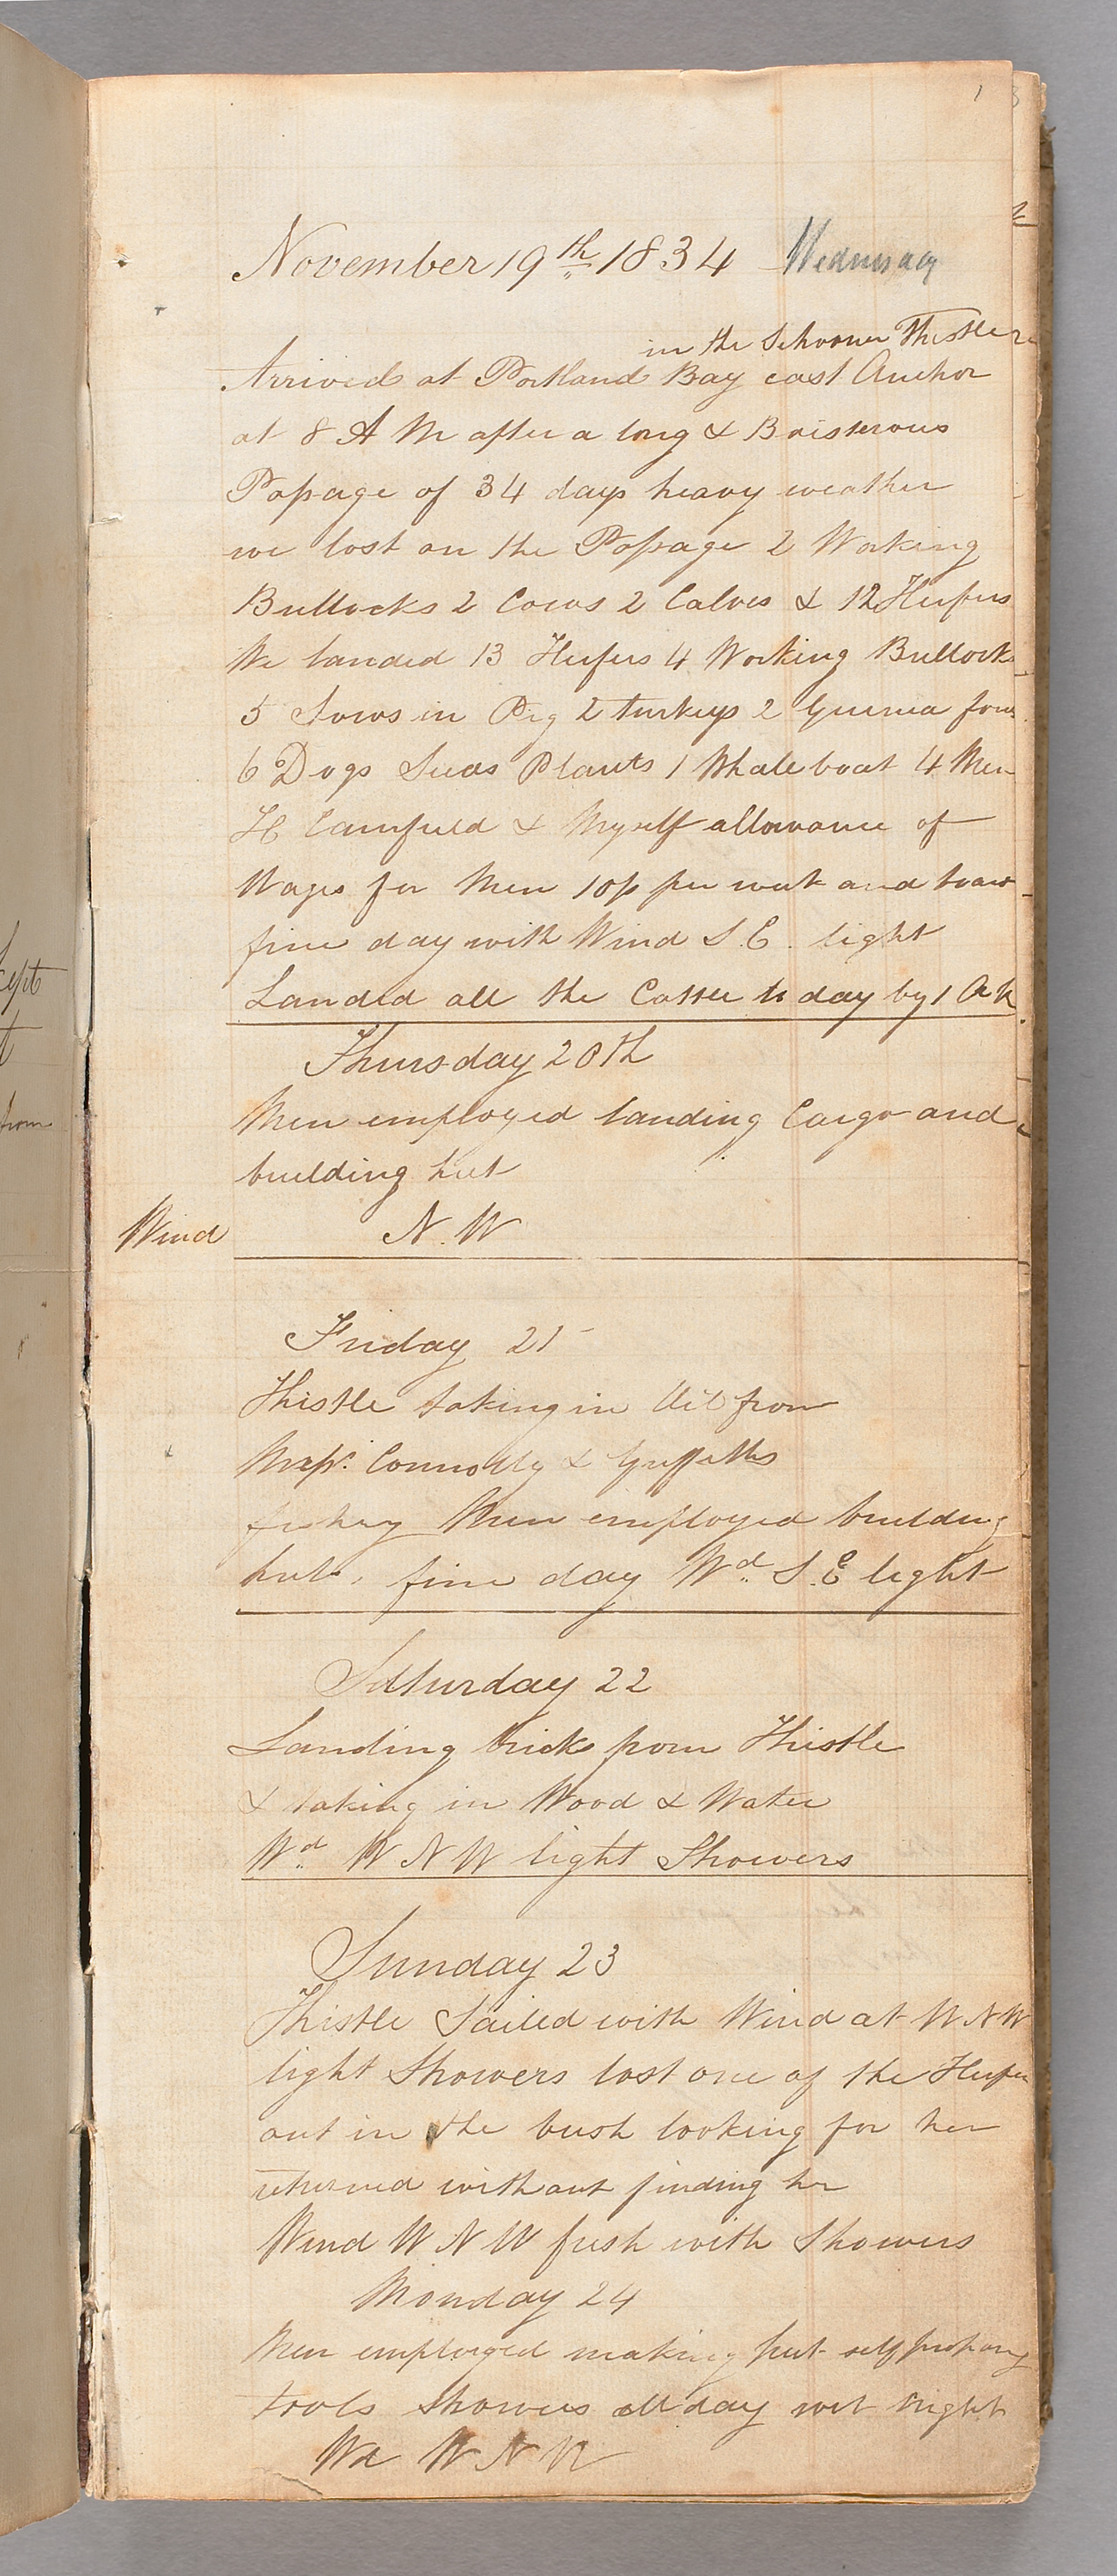 1
November 19th 1834 Wednesday
in the Schooner Thistle
Arrived at Portland Bay cast Anchor
at 8 A M after a long & Boisterous
Passage of 34 days heavy weather
we lost on the Passage 2 Working
Bullocks 2 Cows 2 Calves & 12 Heifers
We landed 13 Heifers 4 Working Bullocks
5 Sows in Pig 2 turkeys 2 Guinea fows
6 Dogs Seeds Plants 1 Whale boat 4 Men
H Camfield & Myself allowance of
Wages for Men 10/ per week and
fine day with Wind S.E. light
Landed all the Cattle to day by 1
Thursday 20th
Men employed landing Cargo and
building hut
Wind N.W
Friday 21
Thistle taking in Oil from
Messrs. Connolly & Griffiths
fishery Men employed building
hut. fine day Wd. S.E light
Satturday 22
Landing bricks from Thistle
& taking in Wood & Water
Wd. W N W light Showers
Sunday 23
Thistle Sailed with Wind at W N W
light Showers lost one of the Heifers
out in the bush looking for her
returned without finding her
Wind W N W fresh with Showers
Monday 24
Men employed making hut self
tools Showers all day wet night
Wd W N W